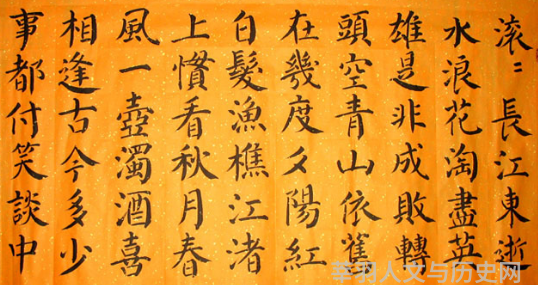 滚〻長江東逝
水浪花淘盡英
雄是非成敗轉
頭空青山依舊
在幾度夕陽紅
白髮漁樵江渚
上慣看秋月春
風一壺濁酒喜
相逢古今多少
事都付笑談中
人文与历史网